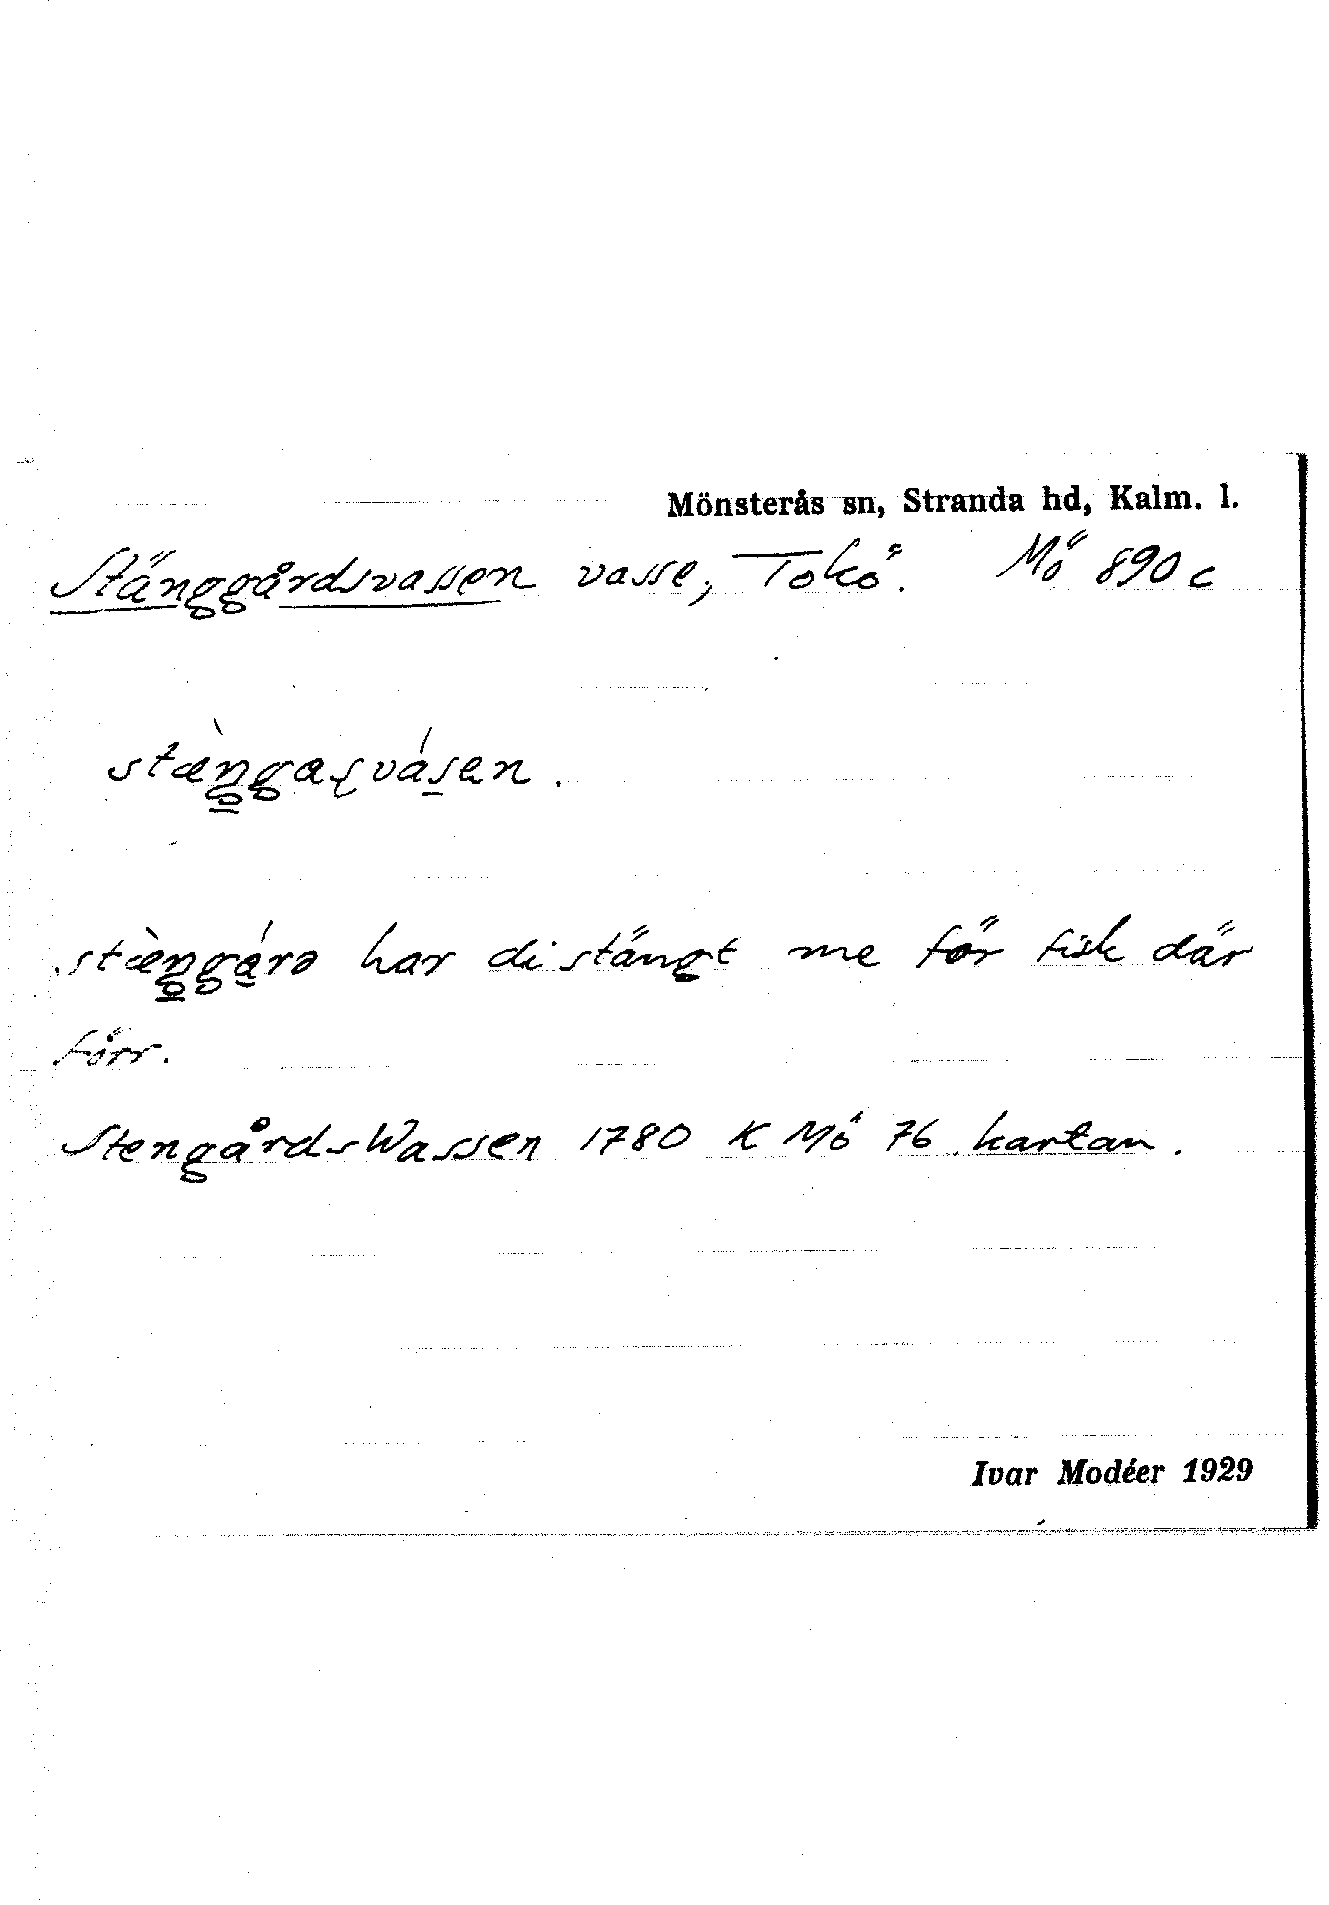 Mönsterås sn, Stranda hd, Kalm. l.
Stänggårdsvassen vasse, Tokö. Mö 890 c
stæ̀ŋgaʂvásen.
stæ̀ŋgárə har di stängt me för fisk där
förr.
StengårdsWassen 1780 K Mö 76 kartan.
Ivar Modéer 1929